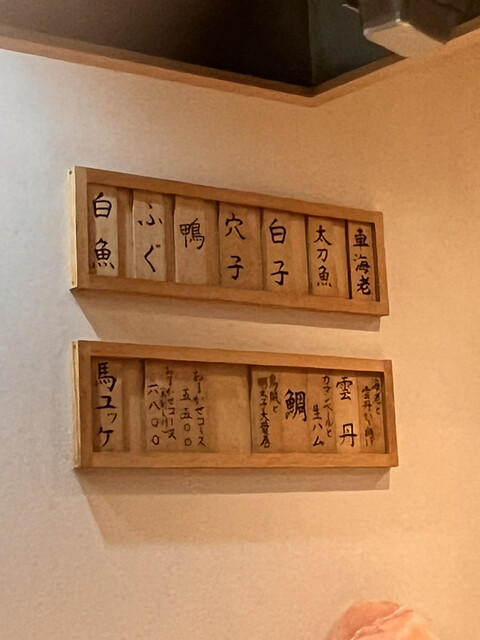 車海老
太刀魚
白子
穴子
鴨
ふぐ
白魚
海老と
雲丹
カマンベールと
生ハム
鯛
明太子大葉
おまかせコース
五五〇〇
おまかせコース
六八〇〇
馬ユッケ